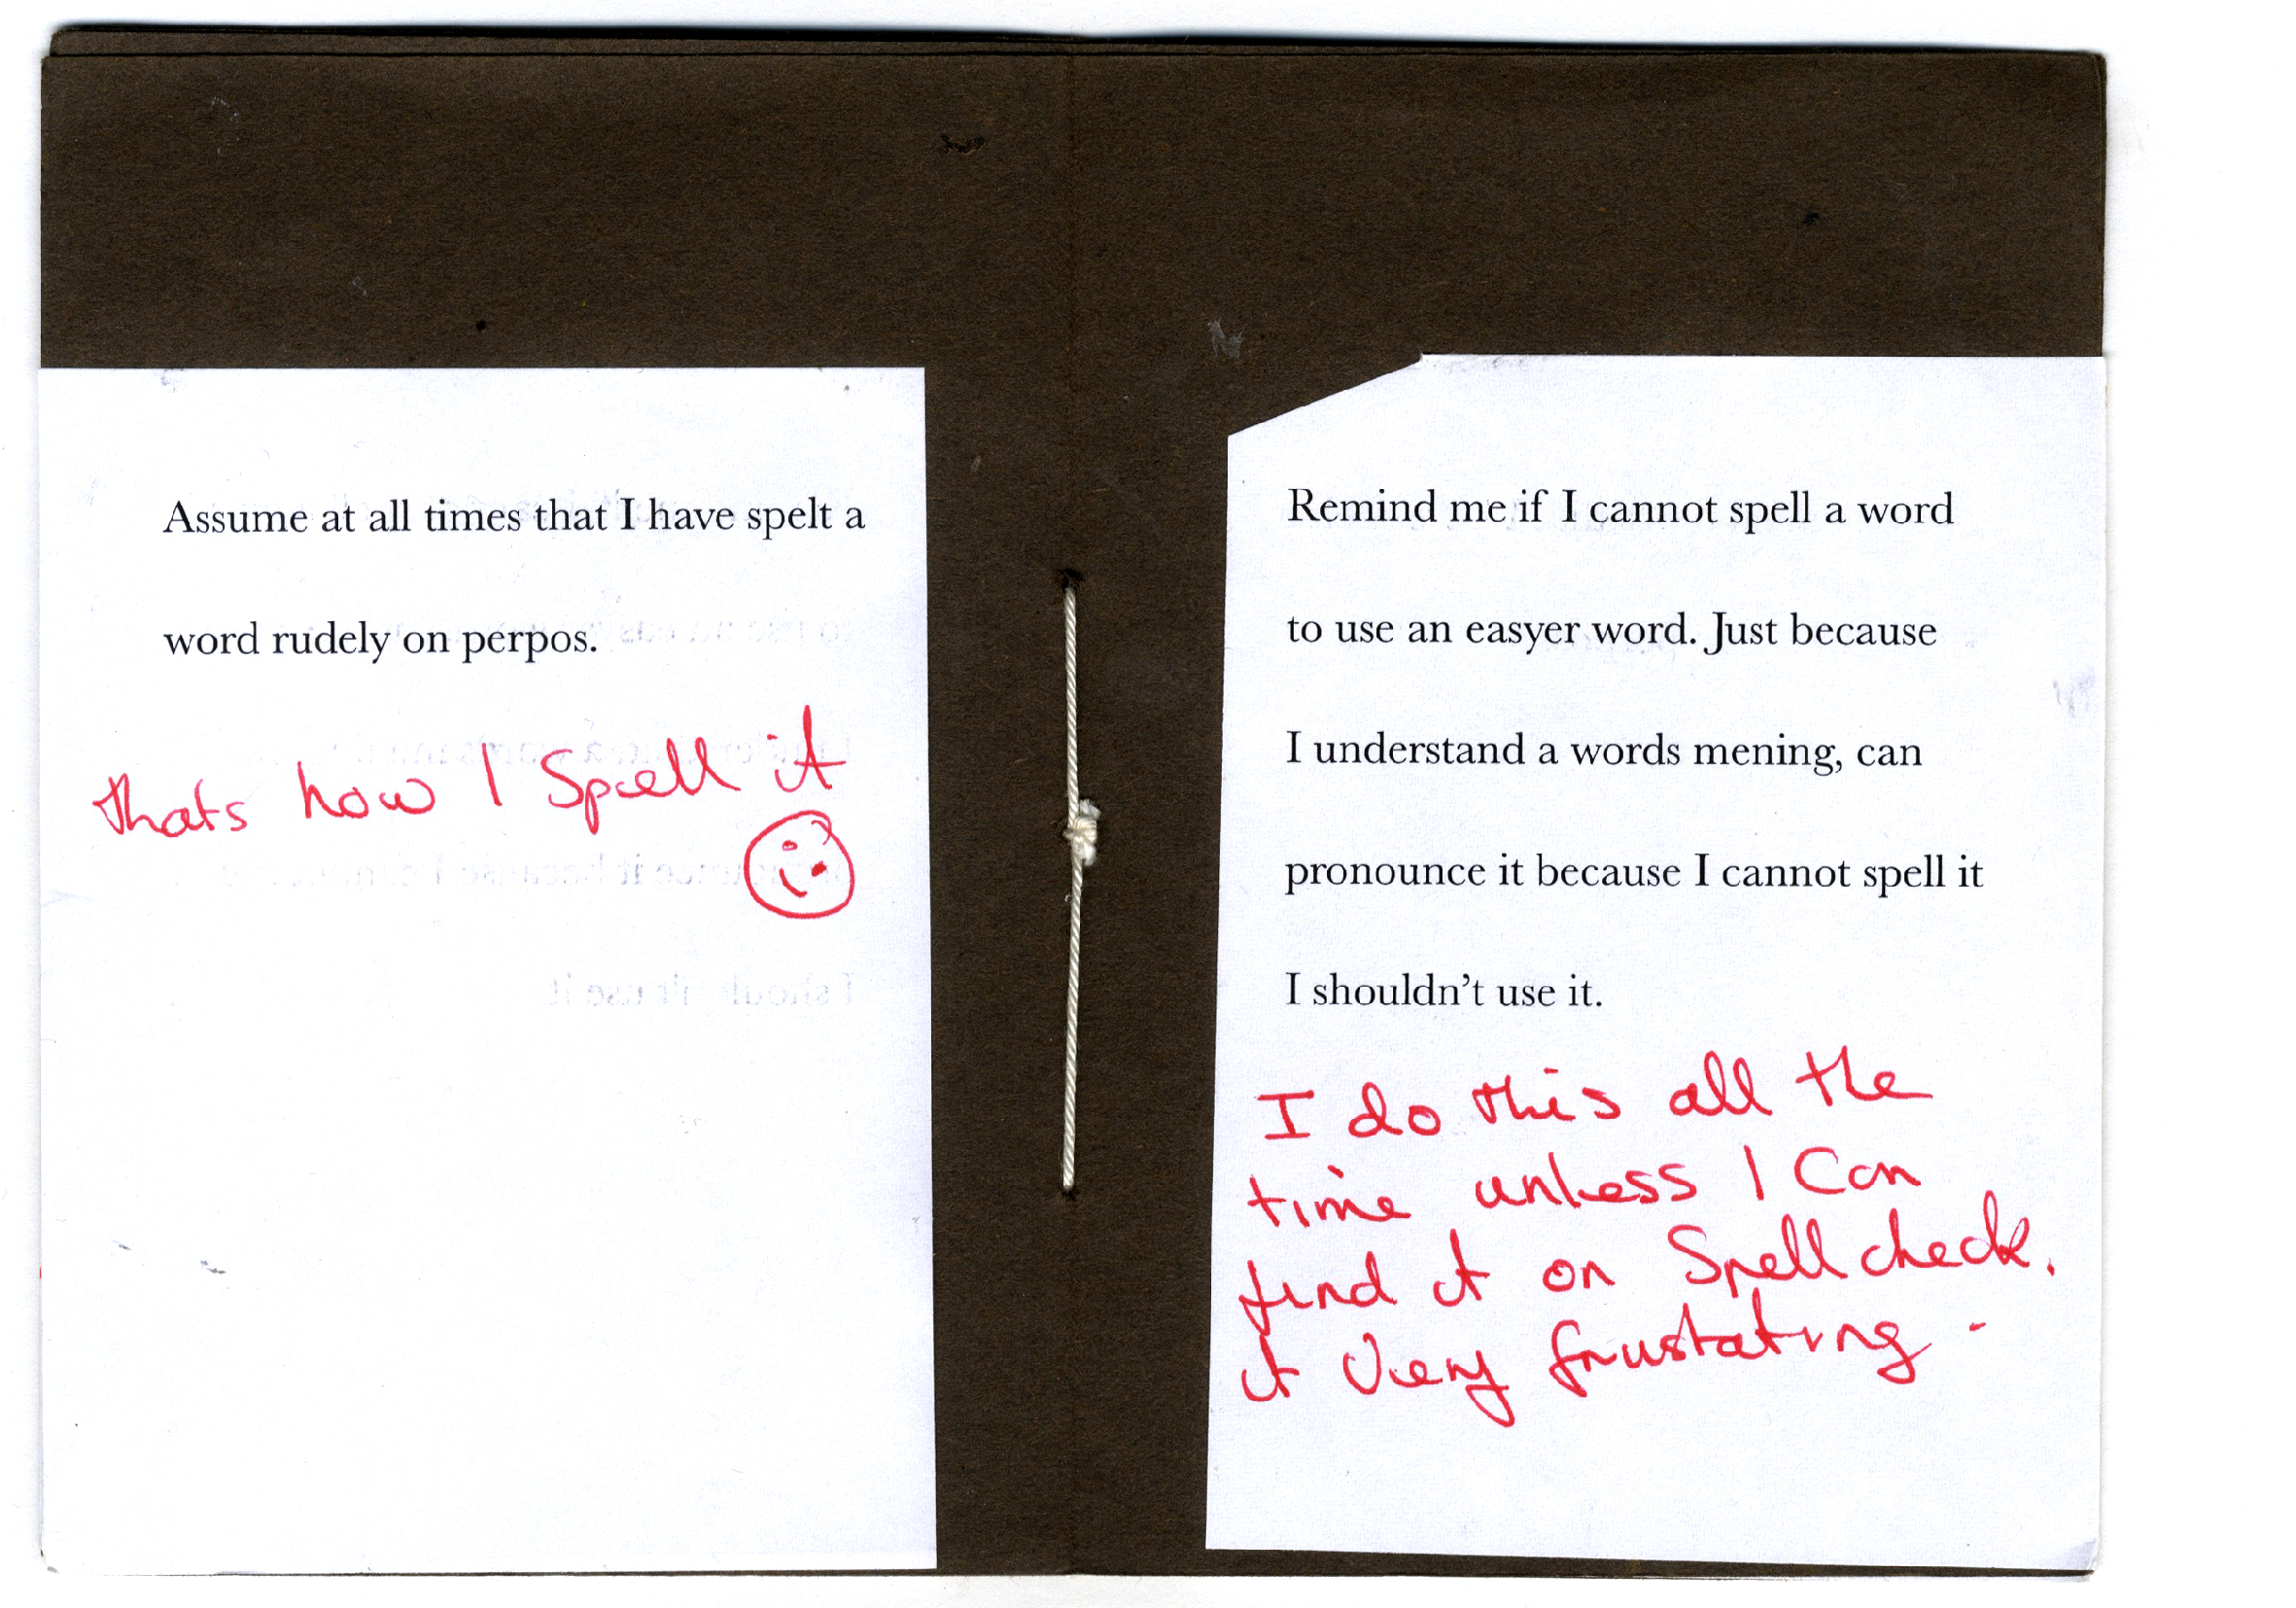 Assume at all times that I have spelt a
word rudely on perpos.
thats how I Spell it
Remind me if I cannot spell a word
to use an easyer word. Just because
I understand a words mening, can
pronounce it because I cannot spell it
I shouldn't use it.
I do this all the
time unless I Can
find it on Spell check.
it Very frustating -